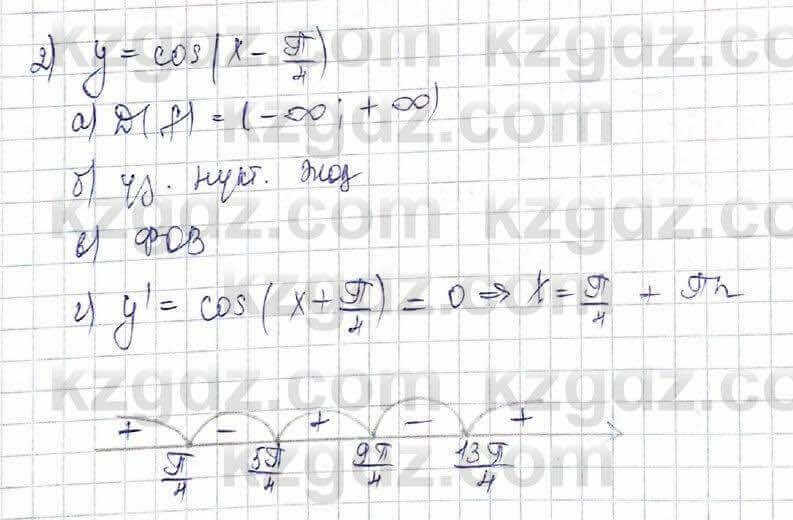 2) y = cos(x - π/4)
а) D(f) = (-∞; +∞)
б) үз. нүкт. жоқ
в) ФОВ
г) y' = cos(x + π/4) = 0 ⇒ x = π/4 + πn
+ - + - +
π/4 5π/4 9π/4 13π/4
kzgdz.com kzgdz.com
kzgdz.com
kzgdz.com kzgdz.com
kzgdz.com
kzgdz.com kzgdz.com
kzgdz.com